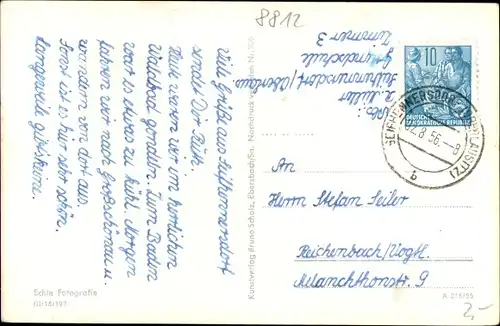 8812
Viele Grüße aus Seifhennersdorf
sendet Dir Rüth.
Heute waren wir im herrlichen
Waldbad gondeln. Zum Baden
war es etwas zu kühl. Morgen
fahren wir nach Großschönau u.
wandern von dort aus.
Sonst ist es hier sehr schön.
Langeweile gibt's keine.
Abs.:
R. Müller
Seifhennersdorf/Oberlaus.
Grundschule
Zimmer 3
10
DEUTSCHE
DEMOKRATISCHE REPUBLIK
SEIFHENNERSDORF (OBERLAUSITZ)
2.8.56.-8
b
An
Herrn Stefan Seiler
Reichenbach/Vogtl.
Melanchthonstr. 9
Echte Fotografie
III/18/197
Kunstverlag Bruno Scholz, Ebersbach/Sa.
A 216/55
2,-